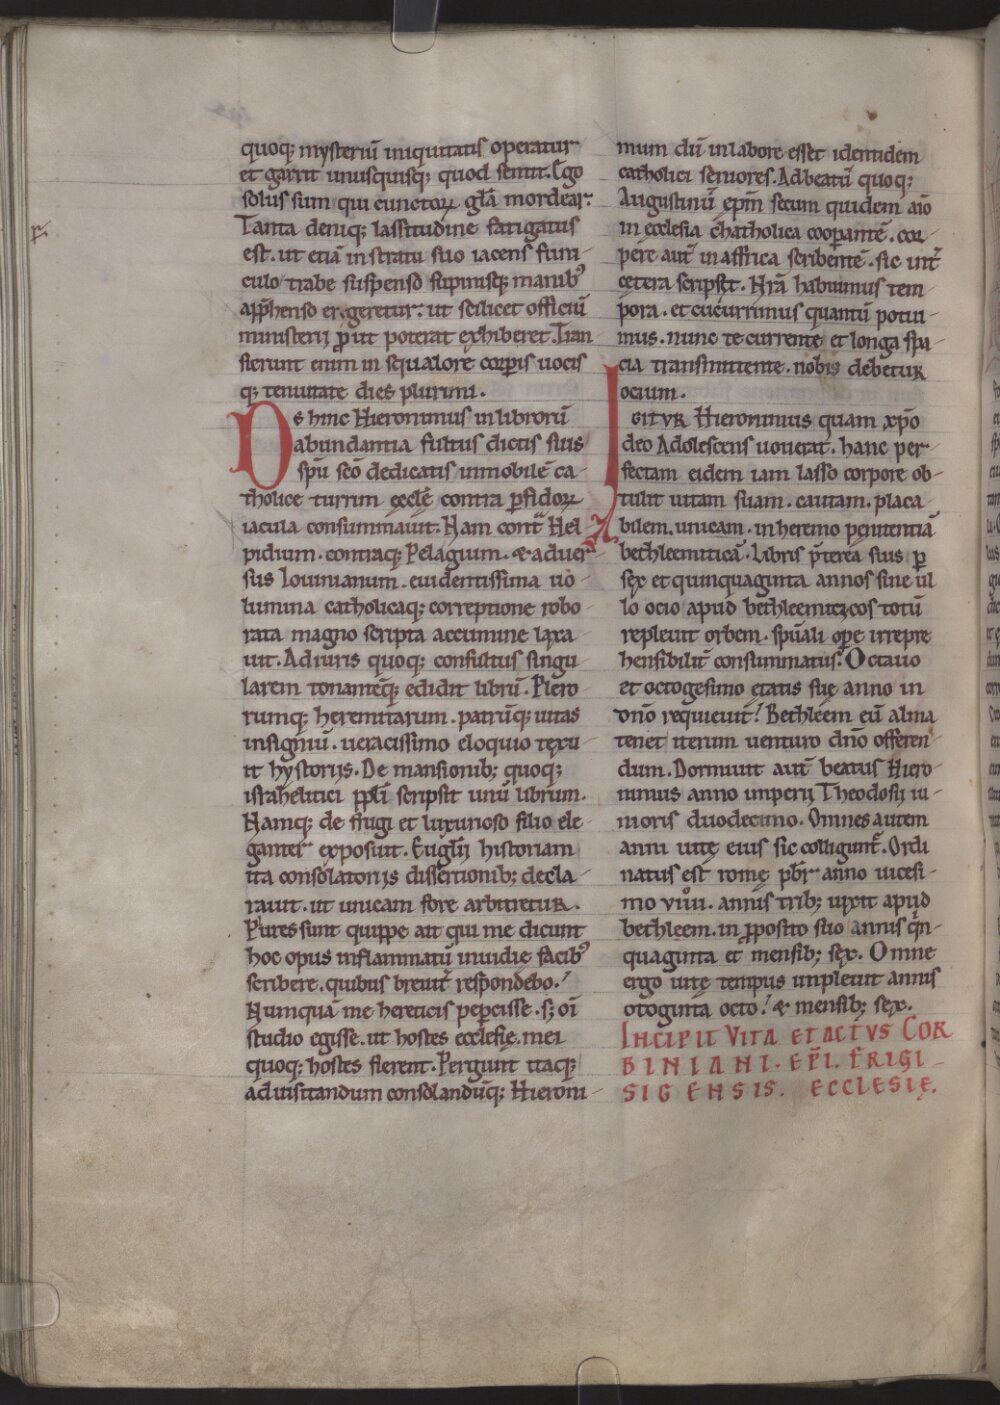 quoq; mysteriū iniquitatis operatur
et garrit unusquisq; quod sentit. Ego
solus sum qui cunctoꝝ glā mordear.
Tanta deniq; lassitudine fatigatus
est. ut etiā in stratu suo iacens funi-
culo trabe suspenso supinisq; manib᾽
app̄henso erigeretur. ut scilicet officiū
ministerij ꝓut poterat exhiberet. Tran
sierunt enim in squalore corꝑis uocis
q; tenuitate dies plurimi.
De hinc Hieronimus in librorū
abundantia fultus dictis suis
spū sc̄o dedicatis inmobilē ca-
tholice turrim eccłe contra ꝑfidoꝝ
iacula consummauit. Nam contͣ Hel-
pidium. contraq; Pelagium. & aduer-
sus Iouinianum. euidentissima uo-
lumina catholicaq; correptione robo-
rata magno scripta accumine laxa-
uit. Ad iuris quoq; consultus singu-
larem tonanteq; edidit librū. Plero-
rumq; heremitarum. patrūq; uitas
insigniū. ueracissimo eloquio texu-
it hystorijs. De mansionib; quoq;
israhelitici ppłi scripsit unū librum.
Namq; de frugi et luxurioso filio ele-
ganter exposuit. Euglij historiam
ita consolatorijs dissertionib; decla-
rauit. ut unicam fore arbitretur.
Plures sunt quippe ait qui me dicunt
hoc opus inflammatū inuidię facib᾽
scribere. quibus breuit̄ respondebo.
Nunquā me hereticis pepercisse. s; oī
studio egisse. ut hostes ecclesię. mei
quoq; hostes fierent. Pergunt itaq;
ad uisitandum consolandūq; Hieroni-
mum dū in labore esset identidem
catholici seniores. Ad beatū quoq;
Augustinū ep̄m secum quidem aīo
in ecclesia chatholica cooꝑantē. cor-
pore aut̄ in affrica scribentē. sic int̄
cetera scripsit. Nr̄a habuimus tem
pora. et cucurrimus quantū potui-
mus. nunc te currente et longa spa-
cia transmittente. nobis debetur
ocium.
IGITVR Hieronimus quam xp̄o
deo Adolescens uouerat. hanc per-
fectam eidem iam lasso corpore ob-
tulit uitam suam. cautam. placa
bilem. unicam. in heremo penitentiā
bethleemiticā. Libris p̄terea suis ꝑ
sex et quinquaginta annos sine ul-
lo ocio apud bethleemiticos totū
repleuit orbem. sp̄uali oꝑe irrepre
hensibilit̄ consummatus. Octauo
et octogesimo ętatis suę anno in
dn̄o requieuit. Bethleem eū alma
tenet iterum uenturo dn̄o offeren-
dum. Dormiuit aut̄ beatus Hiero-
nimus anno imperij Theodosij iu-
nioris duodecimo. Omnes autem
anni uitę eius sic colligunt̄. Ordi
natus est romę pb̄r anno uicesi-
mo viiii. annis trib; uixit apud
bethleem. in ꝓposito suo annis qͥn-
quaginta et mensib; sex. Omne
ergo uitę tempus impleuit annis
otoginta octo. & mensib; sex.
INCIPIT VITA ET ACTVS COR
BINIANI. EPĪ. FRIGI
SIGENSIS. ECCLESIĘ.